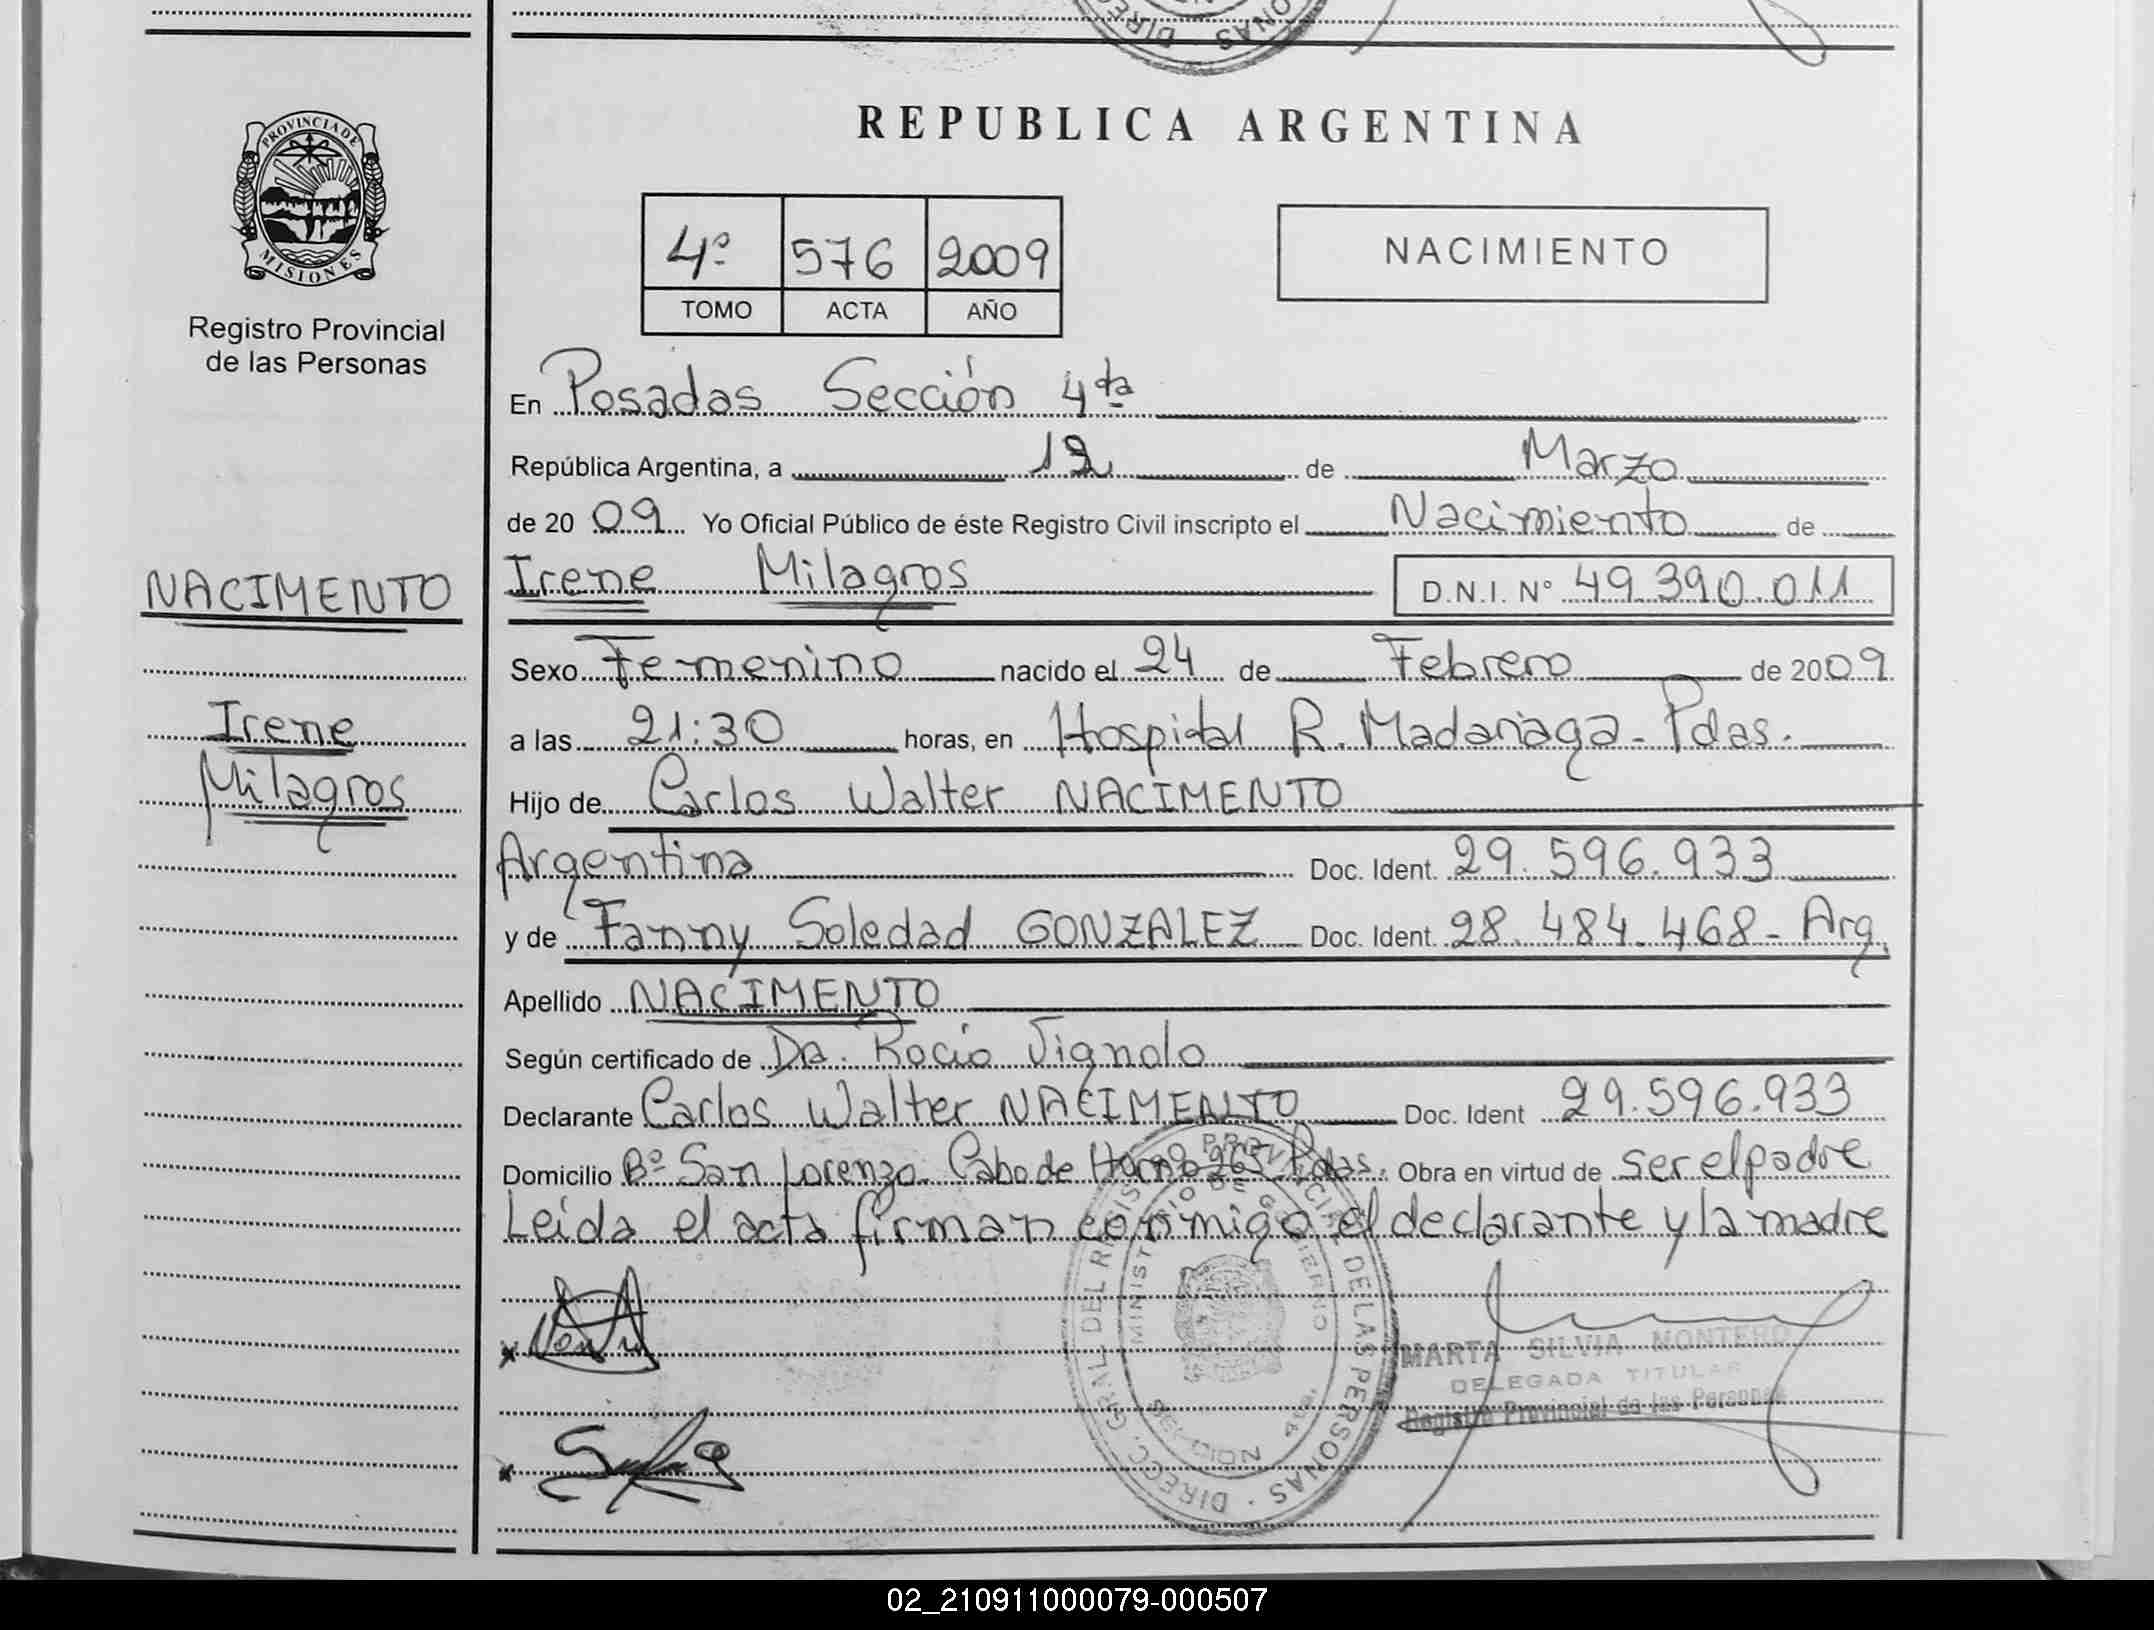 REPUBLICA ARGENTINA
PROVINCIA DE
MISIONES
Registro Provincial
de las Personas
4º 576 2009
TOMO ACTA AÑO
NACIMIENTO
En Posadas Sección 4ta
República Argentina, a 12 de Marzo
de 2009 Yo Oficial Público de éste Registro Civil inscripto el Nacimiento de
NACIMENTO
Irene Milagros D.N.I. Nº 49.390.011
Sexo Femenino nacido el 24 de Febrero de 2009
Irene
a las 21:30 horas, en Hospital R. Madariaga - Pdas.
Milagros
Hijo de Carlos Walter NACIMENTO
Argentina Doc. Ident. 29.596.933
y de Fanny Soledad GONZALEZ Doc. Ident. 28.484.468 - Arg.
Apellido NACIMENTO
Según certificado de Da. Rocío Vignolo
Declarante Carlos Walter NACIMENTO Doc. Ident 29.596.933
Domicilio Bº San Lorenzo Cabo de Hornos 265 Pdas. Obra en virtud de ser el padre
Leída el acta firman conmigo el declarante y la madre
DIRECC. GRAL DEL REGISTRO PROVINCIAL DE LAS PERSONAS
MINISTERIO DE GOBIERNO
SECCION 4ta.
MARTA SILVIA MONTERO
DELEGADA TITULAR
Registro Provincial de las Personas
02_210911000079-000507